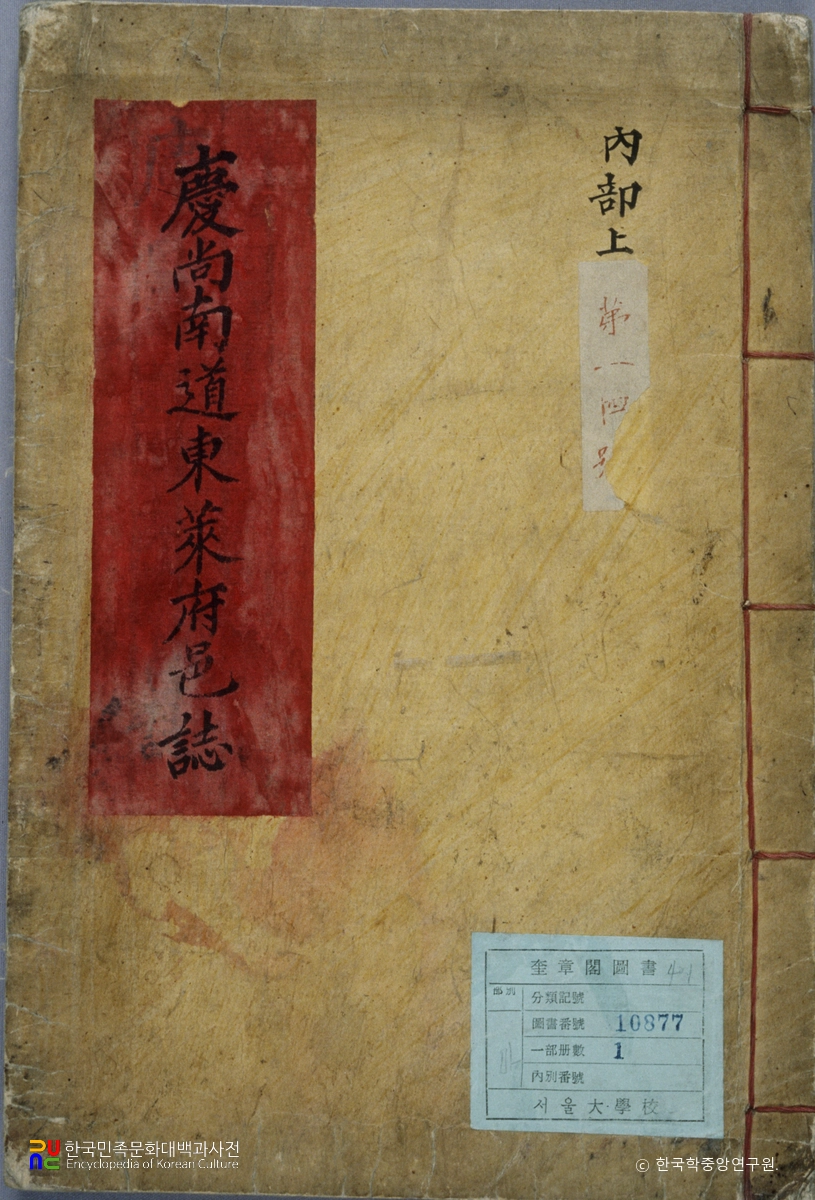 內部上
第一四号
慶尚南道東萊府邑誌
奎章閣圖書
部別
分類記號
圖書番號 10877
一部册數 1
內別番號
서울大學校
한국민족문화대백과사전
Encyclopedia of Korean Culture
© 한국학중앙연구원